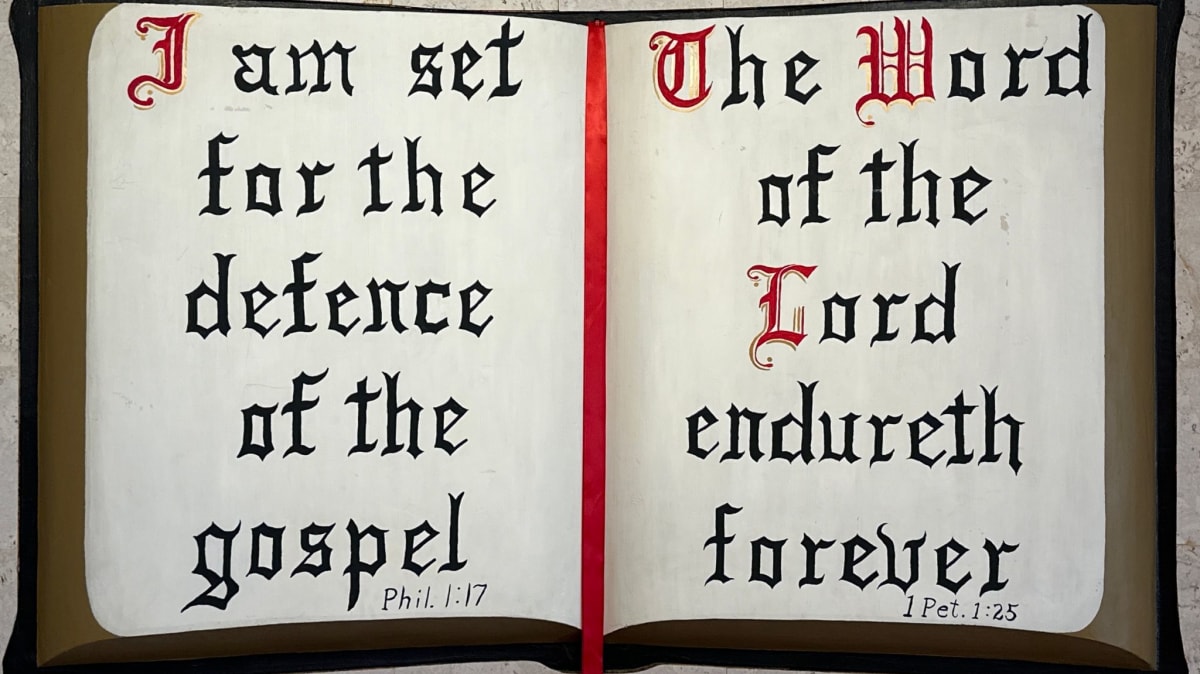 I am set
for the
defence
of the
gospel
Phil. 1:17
The Word
of the
Lord
endureth
forever
1 Pet. 1:25